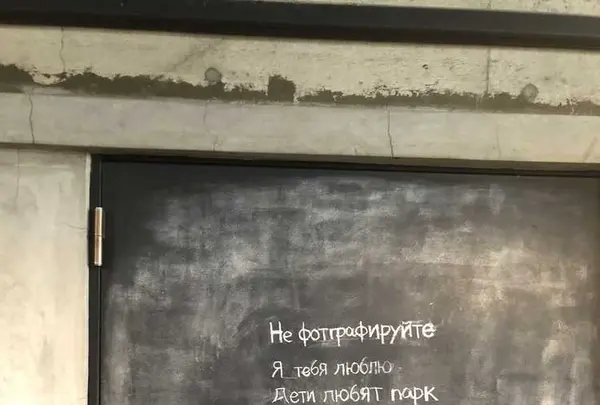 Не фотграфируйте
Я тебя люблю
Дети любят парк